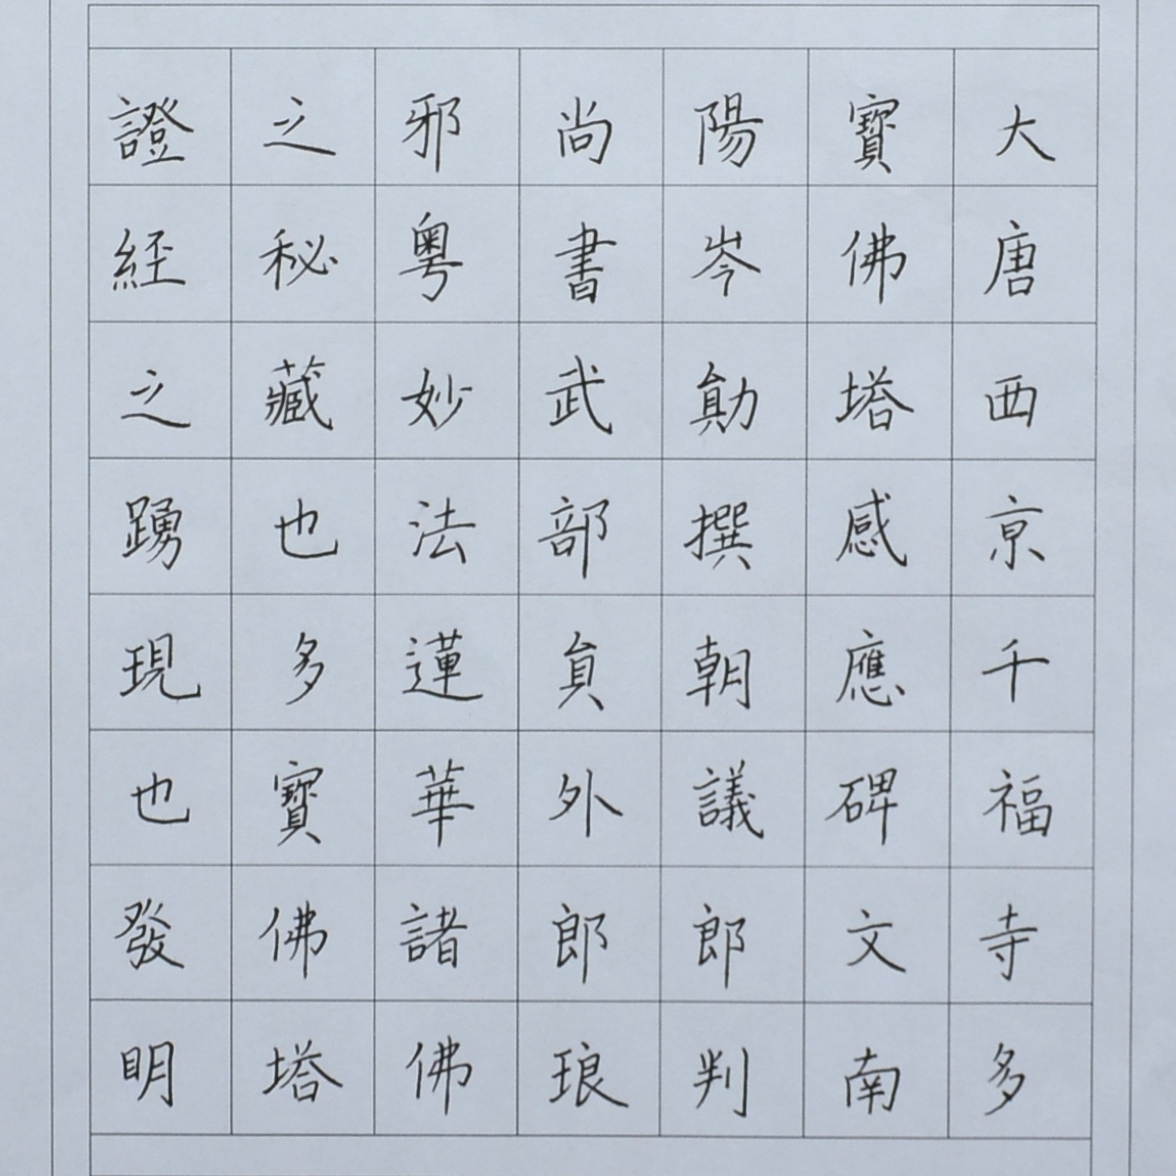 大唐西京千福寺多
寶佛塔感應碑文南
陽岑勛撰朝議郎判
尚書武部員外郎琅
邪粤妙法蓮華諸佛
之秘藏也多寶佛塔
證經之踴現也發明